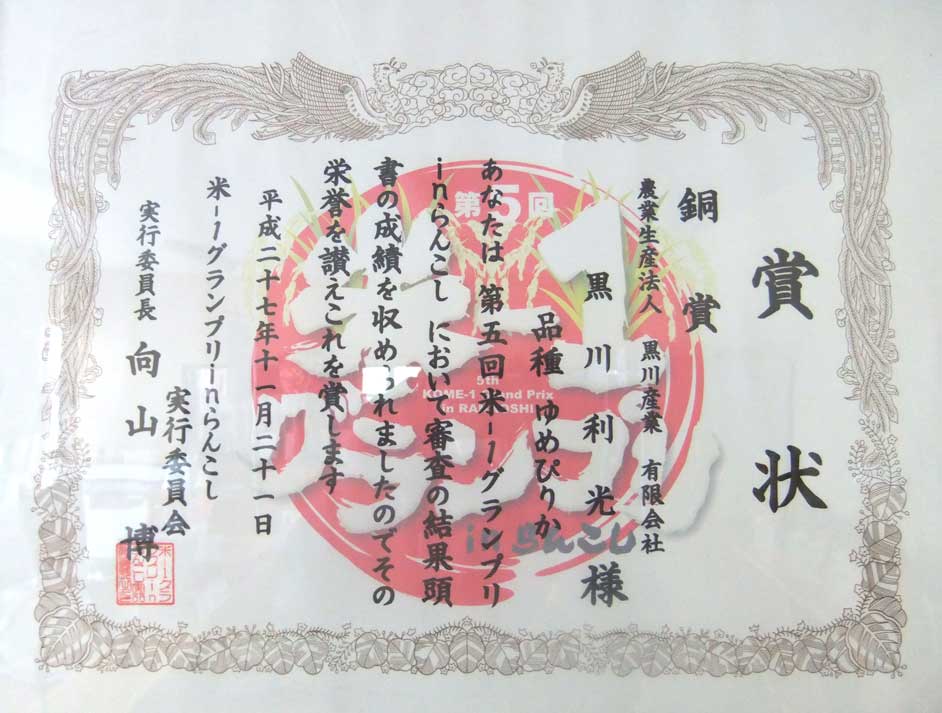 賞状
銅賞
農業生産法人 黒川産業 有限会社
黒川利光様
品種 ゆめぴりか
あなたは第五回米-1グランプリ
inらんこし において審査の結果頭
書の成績を収められましたのでその
栄誉を讃えこれを賞します
平成二十七年十一月二十一日
米-1グランプリinらんこし
実行委員会
実行委員長 向山博
第5回
米-1
グランプリ
5th
KOME-1 Grand Prix
in RANKOSHI
inらんこし